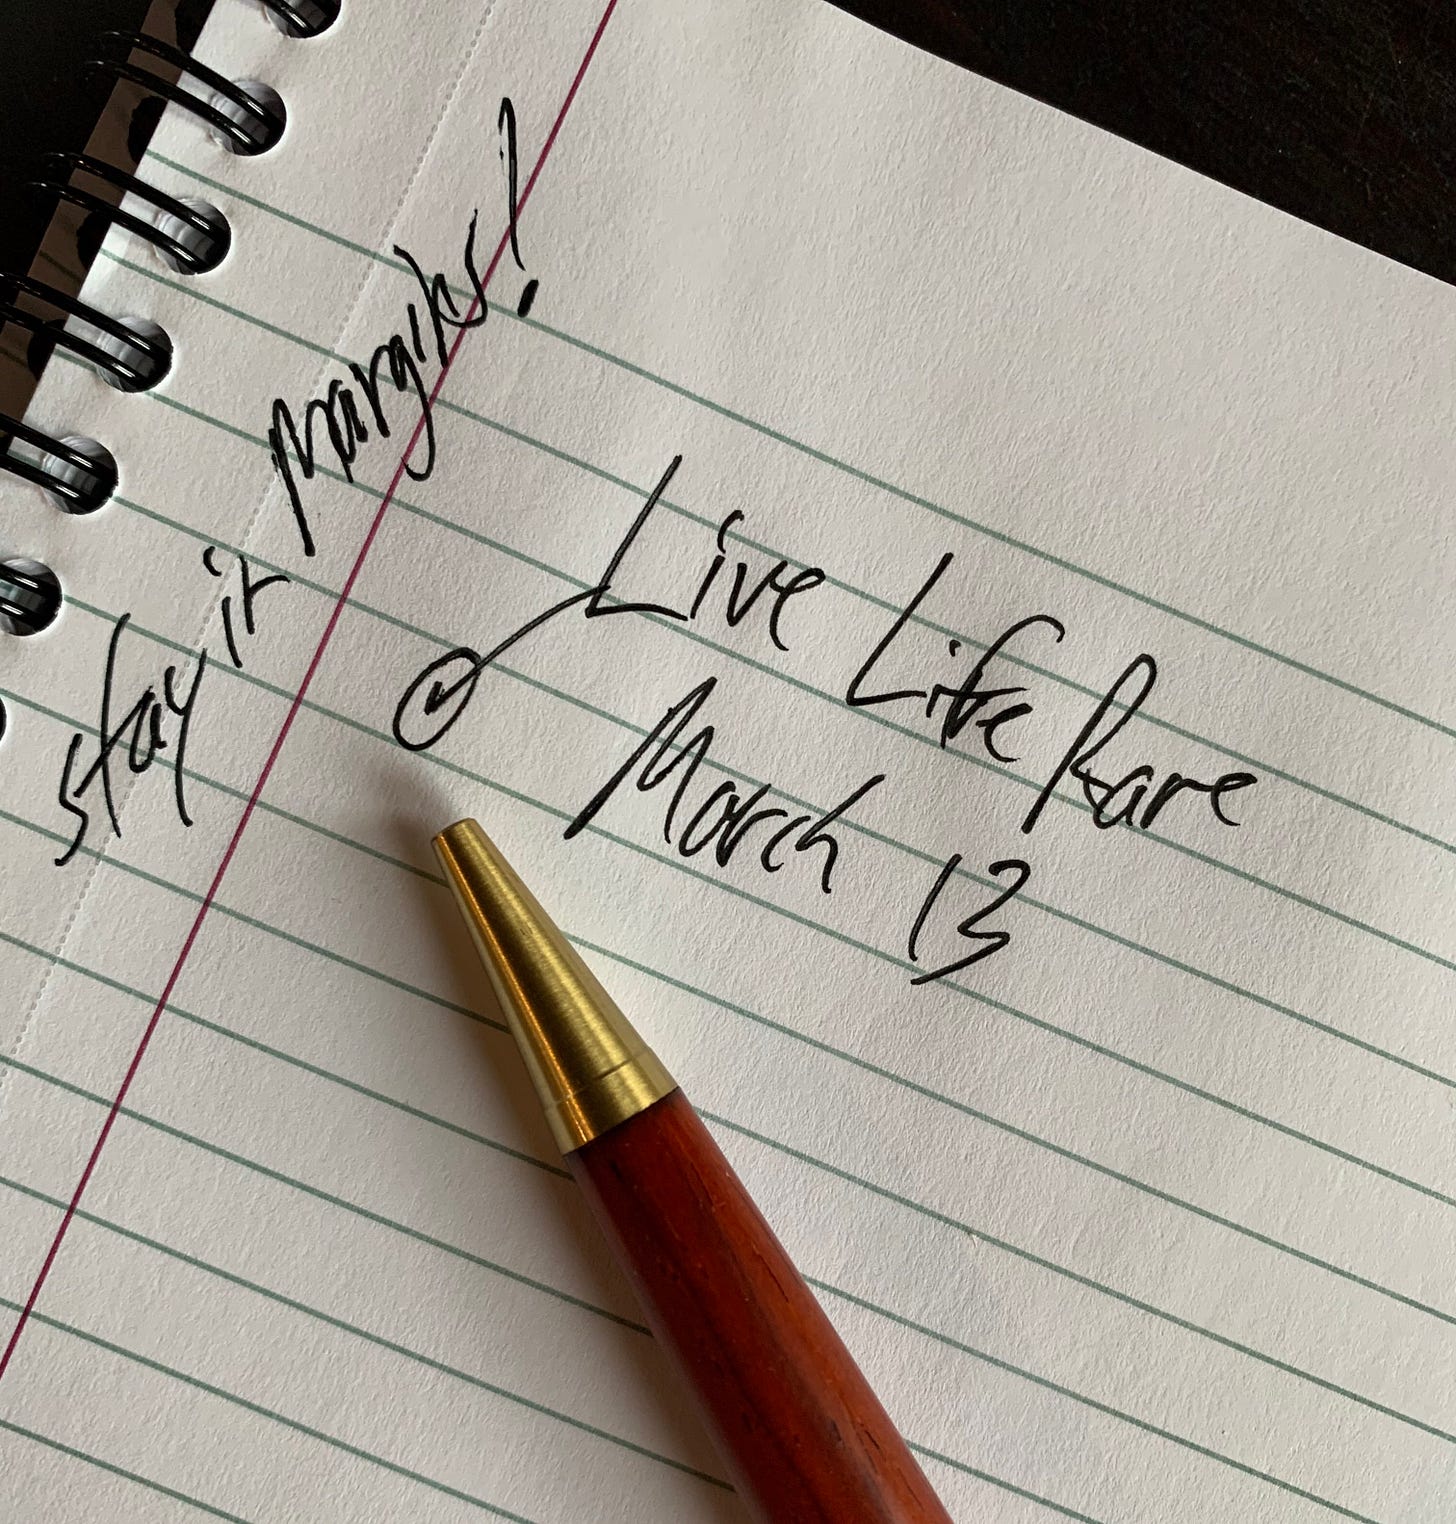 stay in margins!
Live Life Rare
March 13